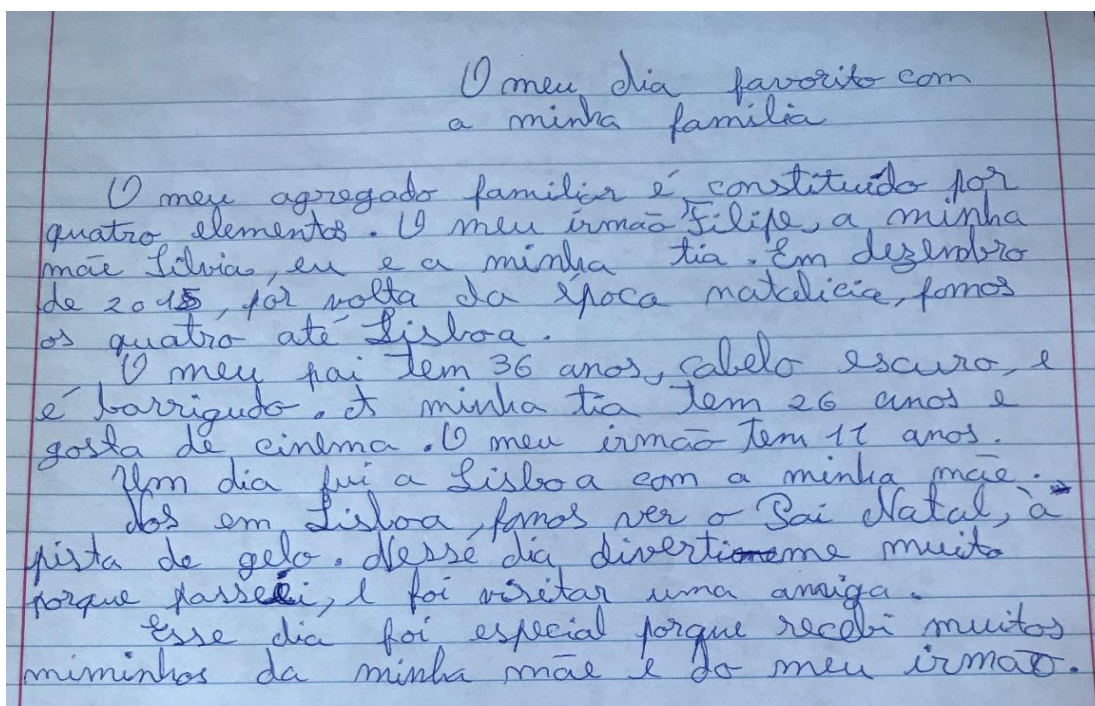 O meu dia favorito com
a minha família
O meu agregado familiar é constituído por
quatro elementos. O meu irmão Filipe, a minha
mãe Sílvia, eu e a minha tia. Em dezembro
de 2015, por volta da época natalícia, fomos
os quatro até Lisboa.
O meu pai tem 36 anos, cabelo escuro, e
é barrigudo. A minha tia tem 26 anos e
gosta de cinema. O meu irmão tem 11 anos.
Um dia fui a Lisboa com a minha mãe.
Nos em Lisboa, fomos ver o Pai Natal, à
pista de gelo. Nesse dia divertime muito
porque passei, e foi visitar uma amiga.
Esse dia foi especial porque recebi muitos
miminhos da minha mãe e do meu irmão.